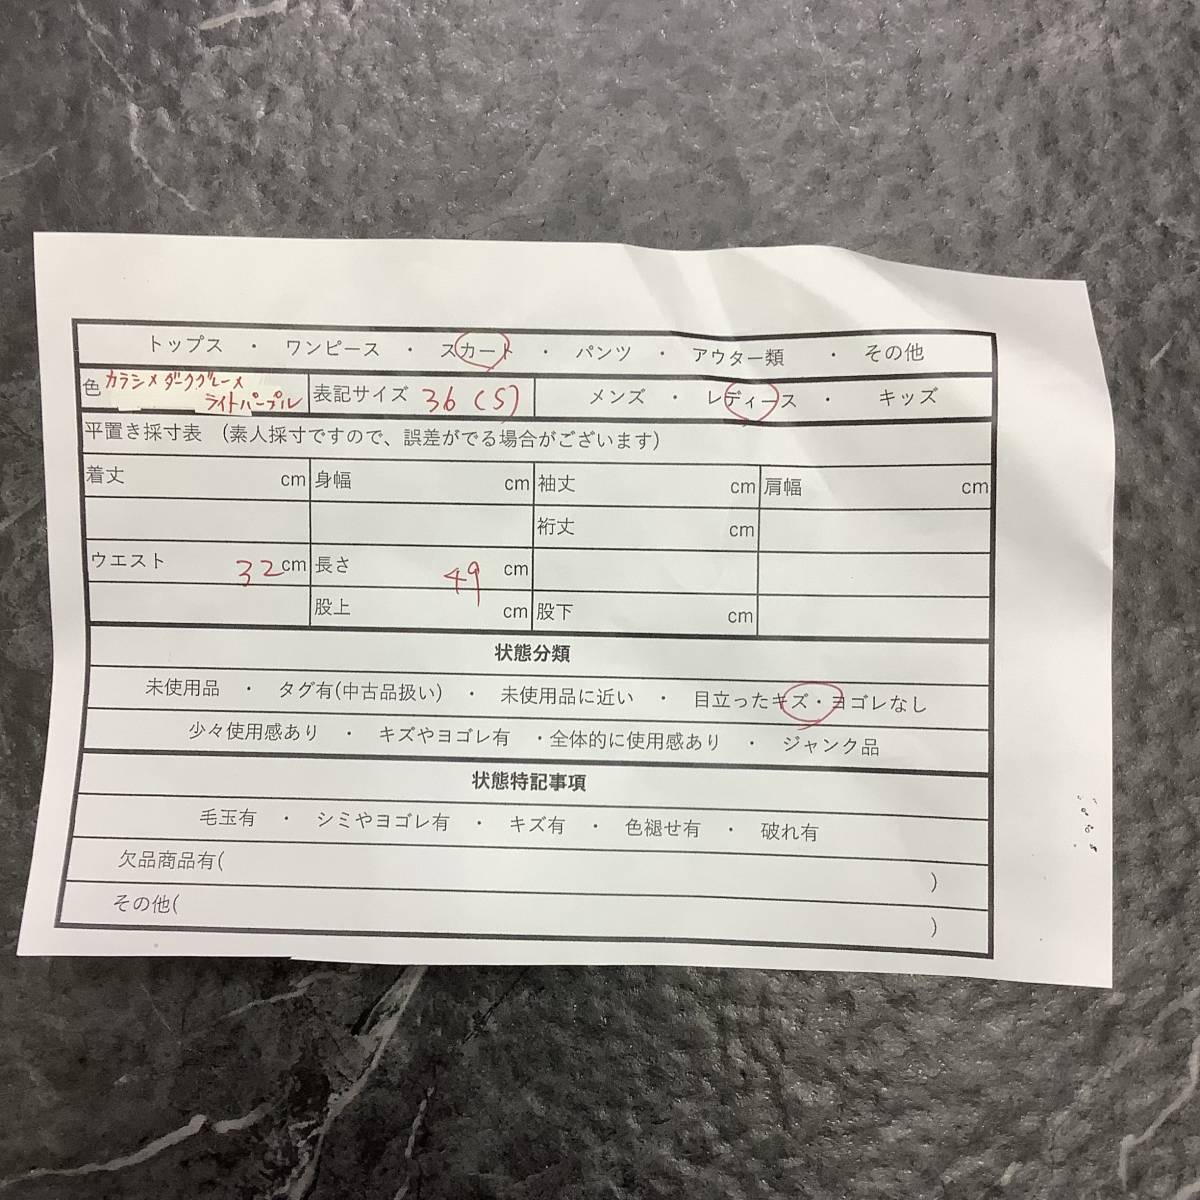 トップス ・ ワンピース ・ スカート ・ パンツ ・ アウター類 ・ その他
色 カラシ×ダークグレー×
ライトパープル
表記サイズ 36(S)
メンズ ・ レディース ・ キッズ
平置き採寸表 (素人採寸ですので、誤差がでる場合がございます)
着丈 cm 身幅 cm 袖丈 cm 肩幅 cm
裄丈 cm
ウエスト 32cm 長さ 49 cm
股上 cm 股下 cm
状態分類
未使用品 ・ タグ有(中古品扱い) ・ 未使用品に近い ・ 目立ったキズ・ヨゴレなし
少々使用感あり ・ キズやヨゴレ有 ・全体的に使用感あり ・ ジャンク品
状態特記事項
毛玉有 ・ シミやヨゴレ有 ・ キズ有 ・ 色褪せ有 ・ 破れ有
欠品商品有( )
その他( )